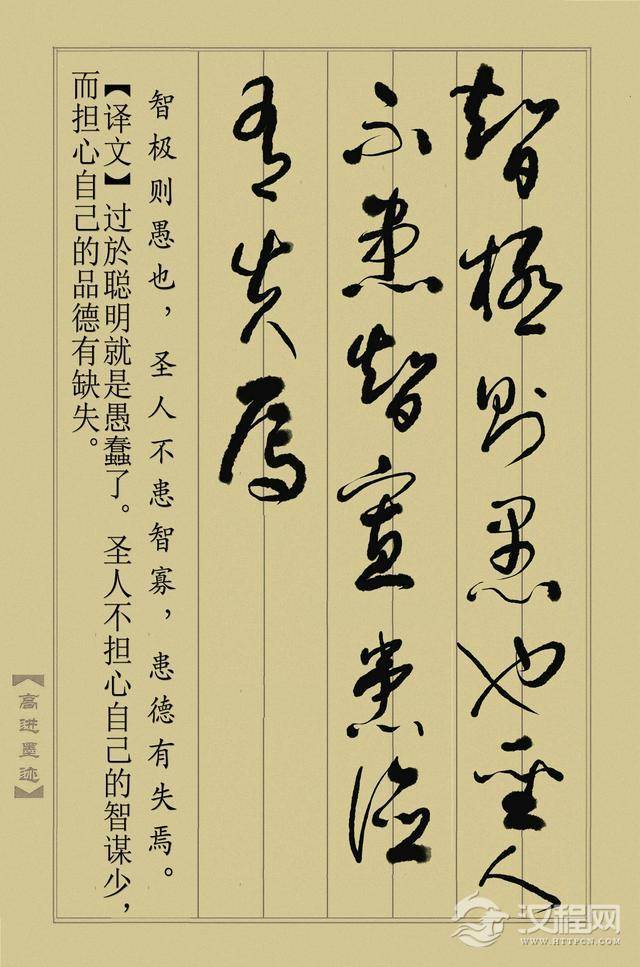 智極則愚也聖人
不患智寡患德
有失焉
智极则愚也，圣人不患智寡，患德有失焉。
【译文】过於聪明就是愚蠢了。圣人不担心自己的智谋少，
而担心自己的品德有缺失。
【高进墨迹】
汉程网
WWW.HTTPCN.COM